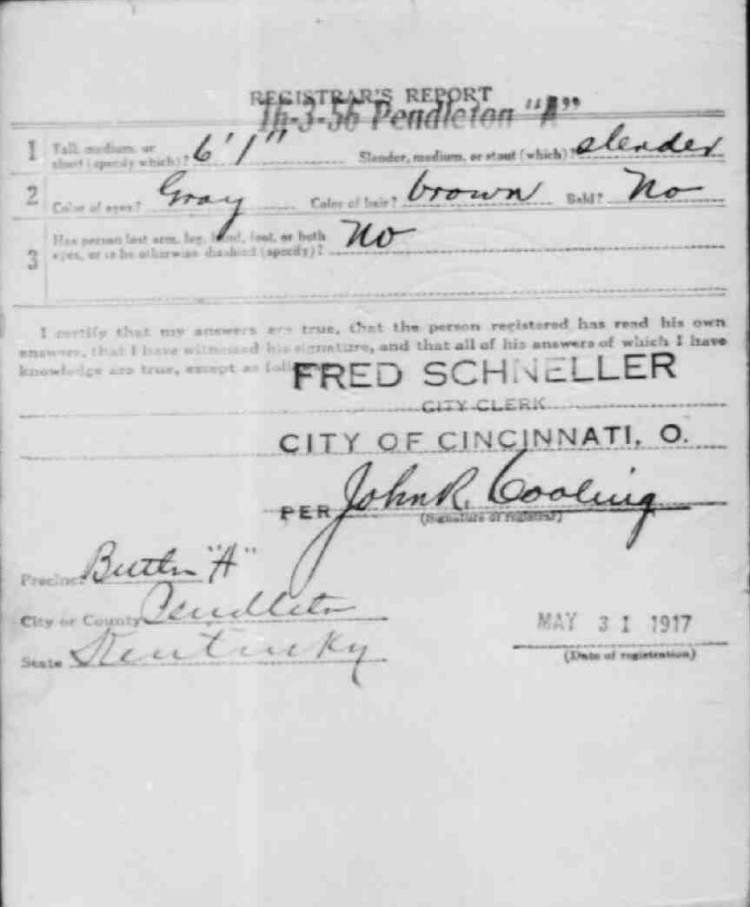 REGISTRAR'S REPORT
16-3-56 Pendleton "A"
1 Tall, medium, or short (specify which)? 6' 1" Slender, medium, or stout (which)? slender
2 Color of eyes? Gray Color of hair? brown Bald? No
3 Has person lost arm, leg, hand, foot, or both
eyes, or is he otherwise disabled (specify)? No
I certify that my answers are true, that the person registered has read his own
answers, that I have witnessed his signature, and that all of his answers of which I have
knowledge are true, except as
FRED SCHNELLER
CITY CLERK
CITY OF CINCINNATI, O.
PER John R. Cooling
(Signature of registrar)
Precinct Butler "A"
City or County Pendleton
State Kentucky
MAY 31 1917
(Date of registration)